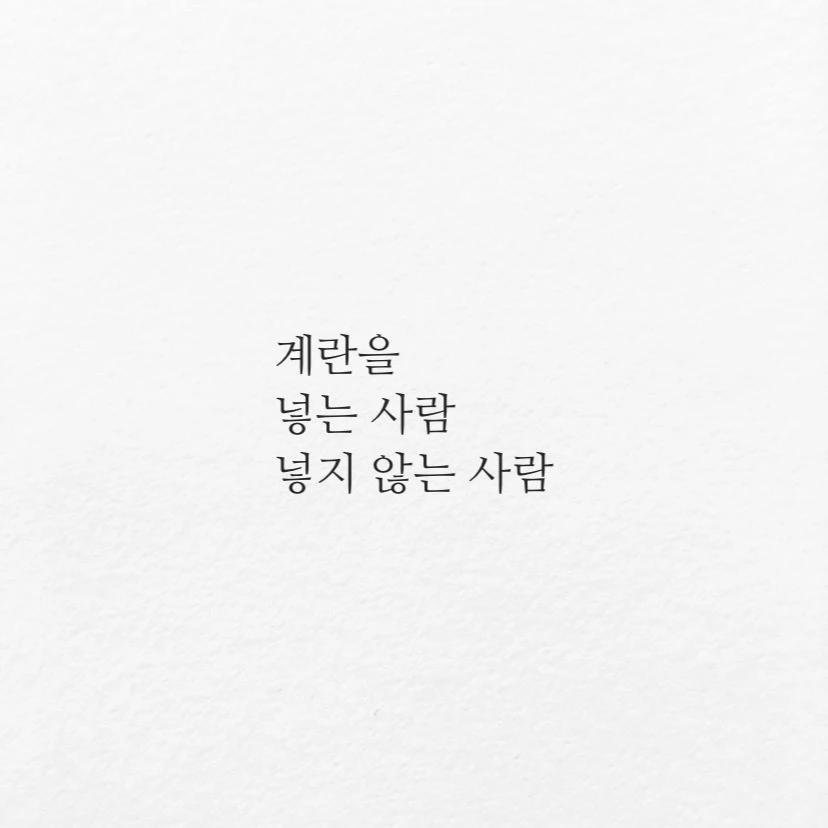 계란을
넣는 사람
넣지 않는 사람